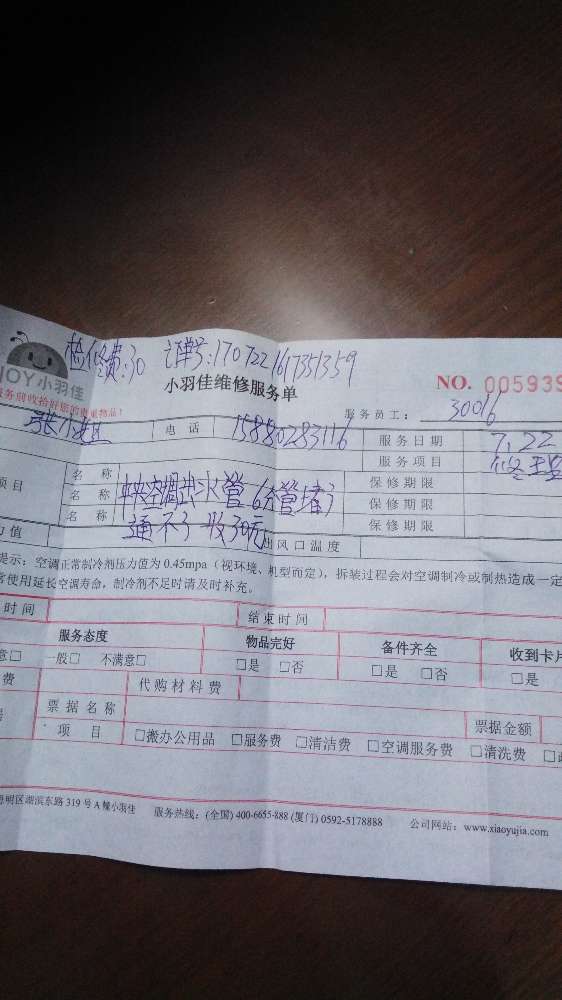 检修费:30 订单号:1707221617351359
JOY小羽佳
小羽佳维修服务单
NO. 005939
服务前收拾好您的贵重物品!
服务员工: 30016
张小姐 电 话 15880283116 服务日期 7.22
服务项目
项目 名 称 中央空调出水管6分管堵了 保修期限
名 称 保修期限
名 称 通不了收30元 保修期限
力值 出风口温度
提示:空调正常制冷剂压力值为0.45mpa(视环境、机型而定),拆装过程会对空调制冷或制热造成一定
使用延长空调寿命,制冷剂不足时请及时补充。
时间 结束时间
服务态度 物品完好 备件齐全 收到卡片
意□ 一般□ 不满意□ □是 □否 □是 □否 □是
费 代购材料费
票据名称 票据金额
项 目 □搬办公用品 □服务费 □清洁费 □空调服务费 □清洗费
明区湖滨东路319号A幢小羽佳 服务热线:(全国) 400-6655-888 (厦门) 0592-5178888 公司网站:www.xiaoyujia.com